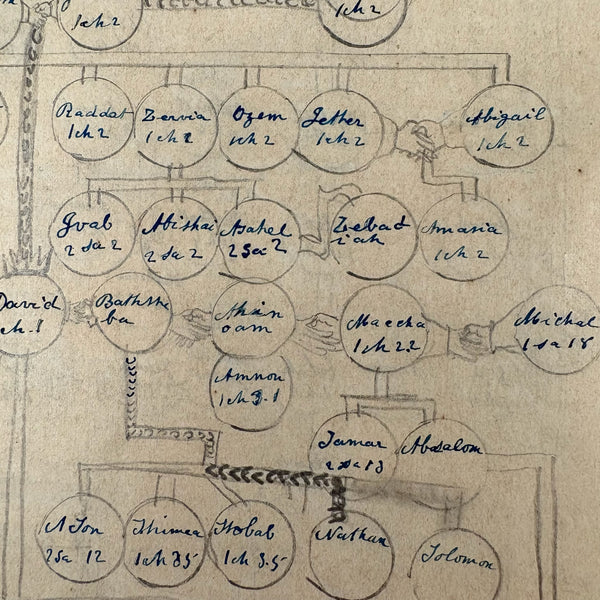 1ch2
1ch2
Raddat
1ch2
Zervia
1ch2
Ozem
1ch2
Jether
1ch2
Abigail
1ch2
Joab
2 sa 2
Abishai
2 sa 2
Asahel
2 sa 2
Zebad
iah
Amasia
1ch 2
David
ch.1
Bathshe
ba
Ahin
oam
Maecha
1ch 2 2
Michal
1 sa 18
Amnon
1ch 3.1
Tamar
2 sa 13
Absalom
A Son
2 sa 12
Shimea
1ch 3 5
Shobab
1ch 3.5
Nathan
Solomon